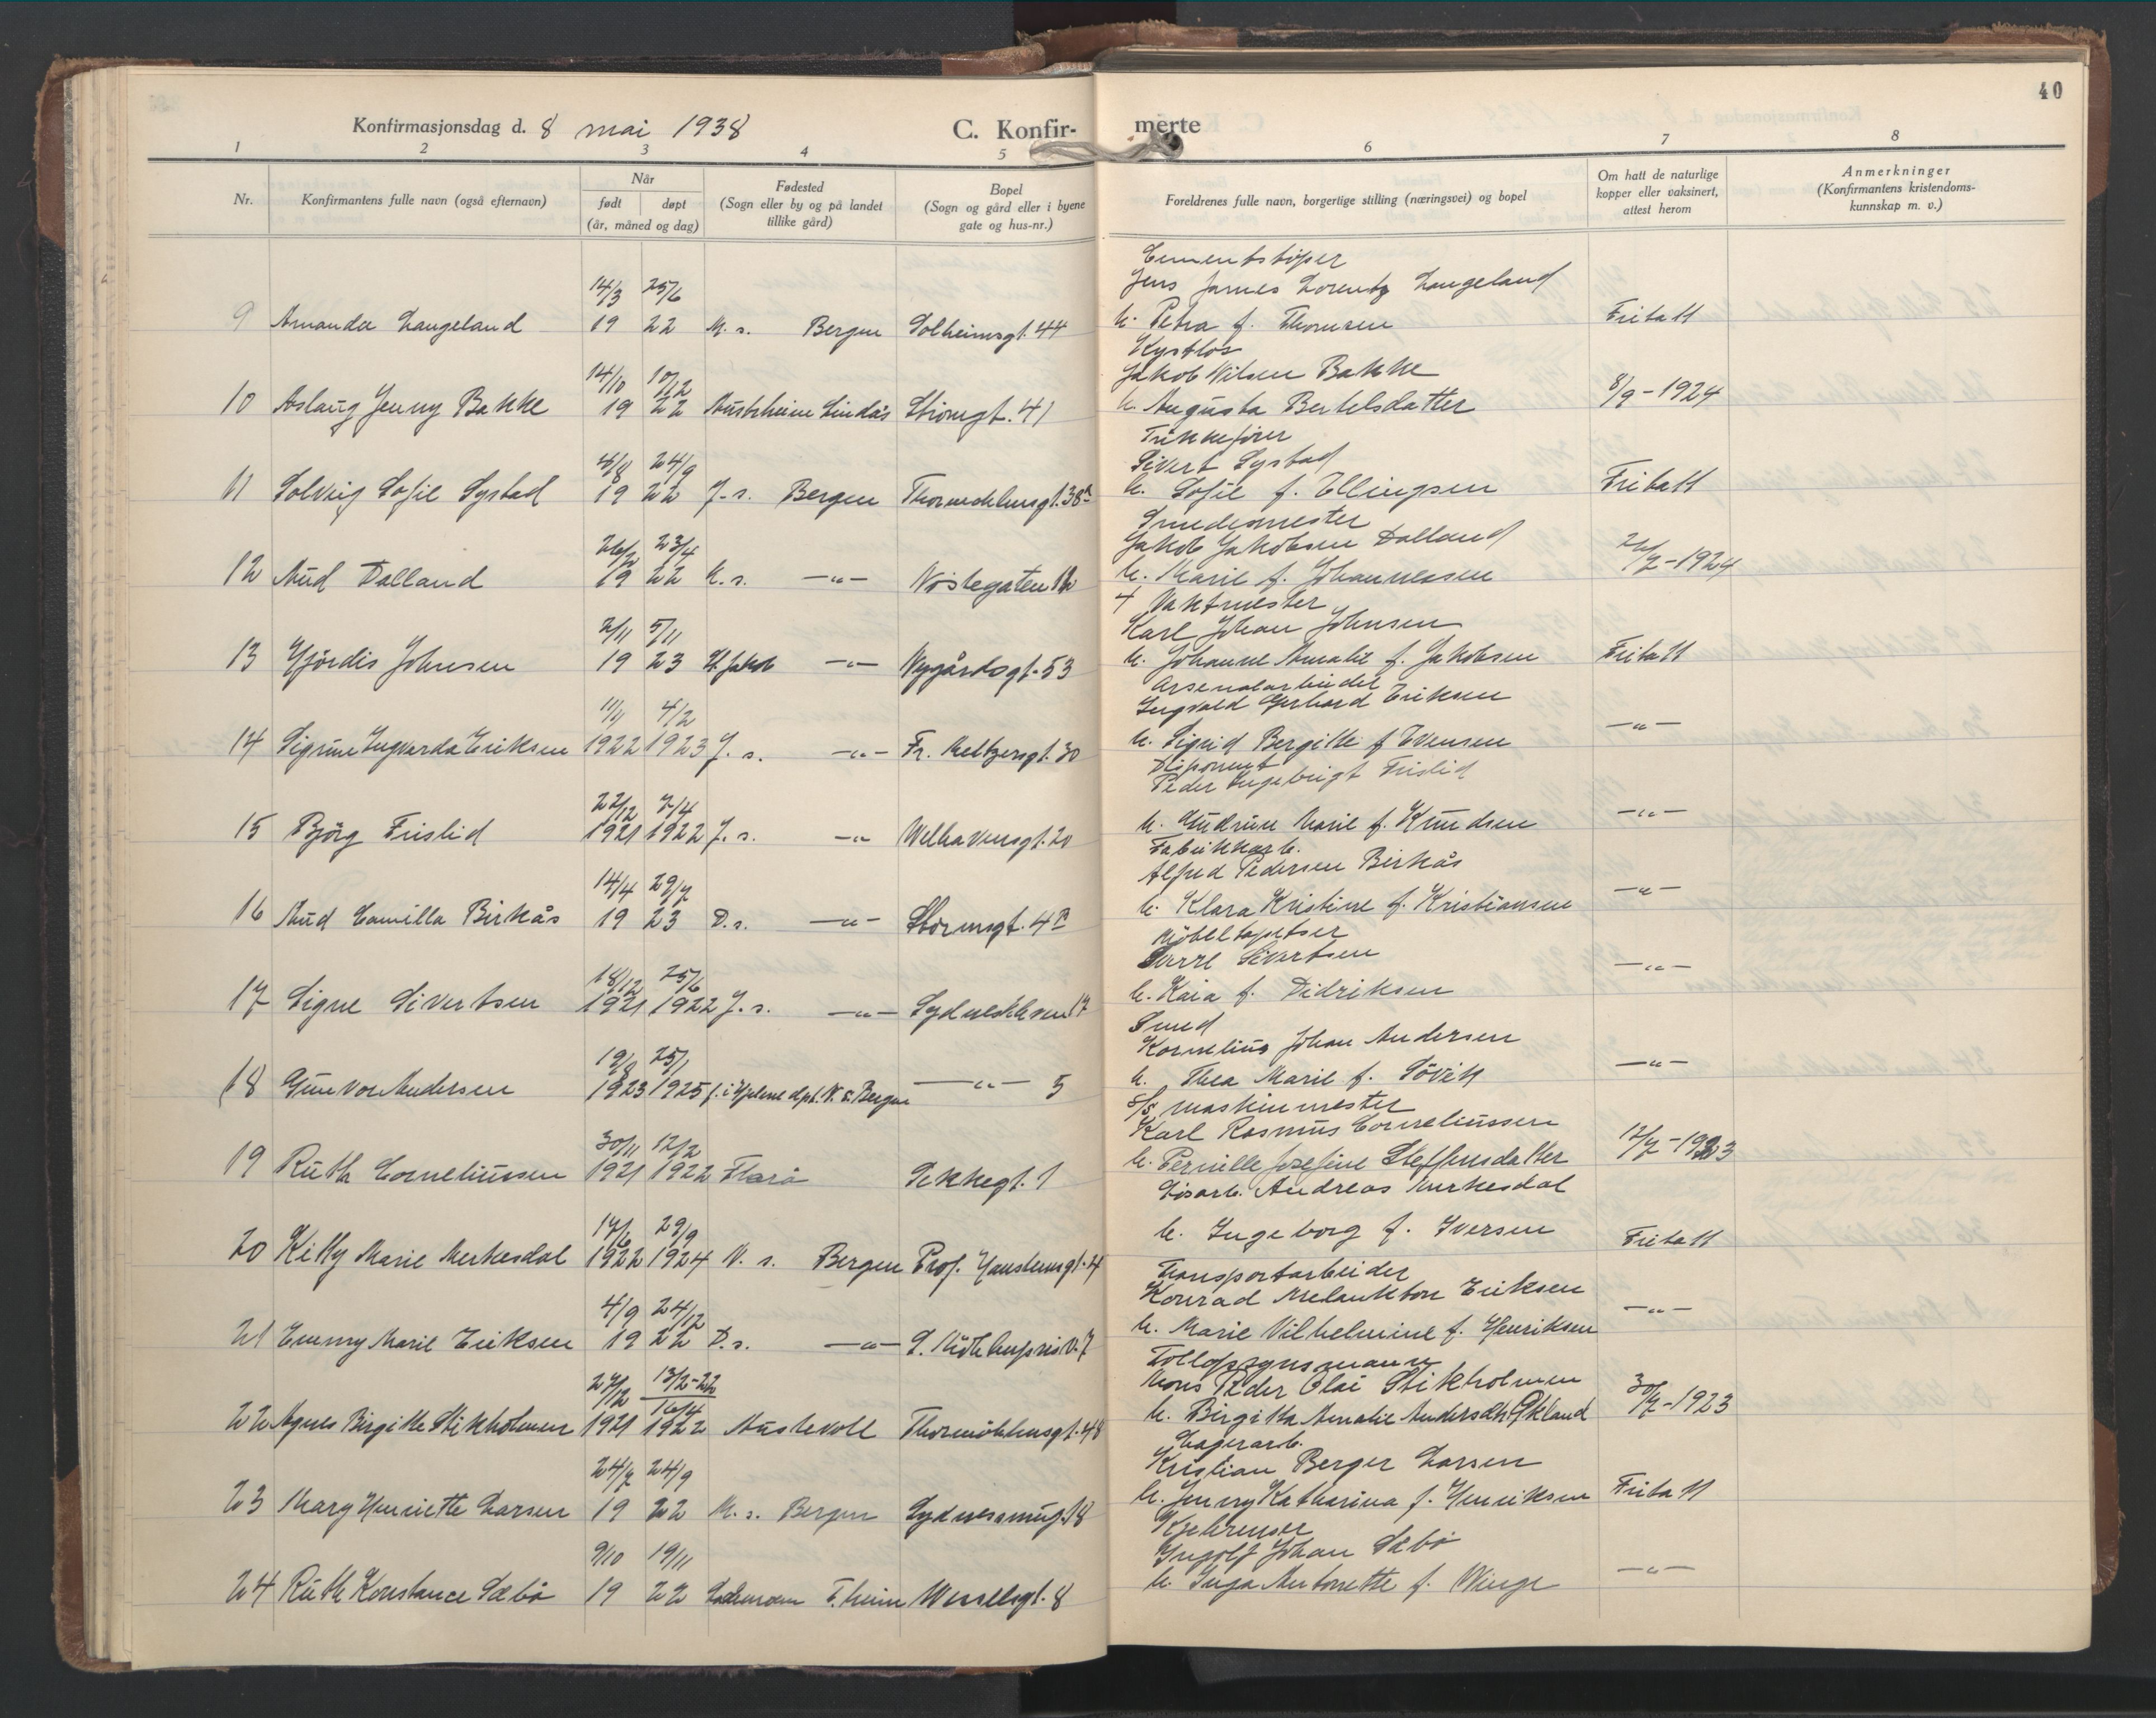 40
Konfirmasjonsdag d. 8 mai 1938
C. Konfir-
merte
1 2 3 4 5 6 7 8
Nr.
Konfirmantens fulle navn (også efternavn)
Når
født døpt
(år, måned og dag)
Fødested
(Sogn eller by og på landet
tillike gård)
Bopel
(Sogn og gård eller i byene
gate og hus-nr.)
Foreldrenes fulle navn, borgertige stilling (næringsvei) og bopel
Om hatt de naturlige
kopper eller vaksinert,
attest herom
Anmerkninger
(Konfirmantens kristendoms-
kunnskap m. v.)
Cementstöper
14/3 25/6 Jens James Lorentz Langeland
9 Amanda Langeland 19 22 M. s. Bergen Solheimsgt. 44 h. Petra f. Thomsen Fritatt
Kystlos
14/10 10/12 Jakob Nilsen Bakke
10 Aslaug Jenny Bakke 19 22 Austrheim Lindås Strömgt. 41 h. Augusta Bertelsdatter 8/9-1924
Trikkefører
4/8 24/9 Sivert Systad
11 Solveig Sofie Systad 19 22 J. s. Bergen Thormøhlensgt. 38a h. Sofie f. Ellingsen Fritatt
Smedemester
26/2 23/4 Jakob Jakobsen Dalland
12 Aud Dalland 19 22 M. s. —"— Nöstegaten h. Marie f. Johannessen 22/7-1924
+ Vaktmester
2/11 5/11 Karl Johan Johnsen
13 Hjördis Johnsen 19 23 St. Jakob —"— Nygårdsgt. 53 h. Johanne Amalie f. Jakobsen Fritatt
Arsenalarbeider
11/11 4/2 Ingvald Gerhard Eriksen
14 Sigrun Ingvarda Eriksen 1922 1923 J. s. —"— Fr. Meltzersgt. 30 h. Sigrid Bergitte f Evensen —"—
Disponent
22/12 7/4 Peder Ingebrigt Frislid
15 Björg Frislid 1921 1922 J. s. —"— Welhavensgt. 20 h. Gudrun Marie f. Knudsen —"—
Fabrikkarb.
14/4 29/7 Alfred Pedersen Birkås
16 Aud Camilla Birkås 19 23 D. s. —"— Stormsgt. 4 h. Klara Kristine f. Kristiansen —"—
Möbeltapetser
18/12 25/6 Sverre Sivertsen
17 Signe Sivertsen 1921 1922 J. s. —"— Sydneskleven 17 h. Kaia f. Didriksen —"—
Smed
19/8 25/1 Kornelius Johan Andersen
18 Gunvor Andersen 1923 1925 f. i Hjelme dpt. N. s. Bergen —"— 5 h. Thea Marie f. Sövik —"—
s/s, maskinmester
30/11 12/2 Karl Rasmus Corneliussen
19 Ruth Corneliussen 1921 1922 Florö Sekkegt. 1 h. Pernille Josefine Steffensdatter 12/7-1923
Lösarb. Andreas Merkesdal
17/6 29/9
20 Kitty Marie Merkesdal 1922 1924 N. s. Bergen Prof. Hansteensgt. 4 h. Ingeborg f. Iversen Fritatt
Transportarbeider
4/9 24/12 Konrad Melankton Eriksen
21 Emmy Marie Eriksen 19 22 D. s. —"— v. 7 h. Marie Vilhelmine f. Henriksen —"—
Tollopsynsmann
27/12 13/2-22 Mons Peder Olai Stikholmen
16/4
22 Agnes Birgitte Stikholmen 1921 1922 Austevoll Thormöhlensgt. 48 h. Birgitta Amalie Andersdtr. Økland 30/7-1923
Lagerarb.
24/7 24/9 Kristian Berger Larsen
23 Mary Henriette Larsen 19 22 M. s. Bergen Sydnessmug. 18 h. Jenny Katharina f. Henriksen Fritatt
9/10 19/11 Ingolf Johan Sæbö
24 Ruth Konstance Sæbö 19 22 Lademoen T.heim Wesselsgt. 8 h. Inga Antonette f. Winge —"—